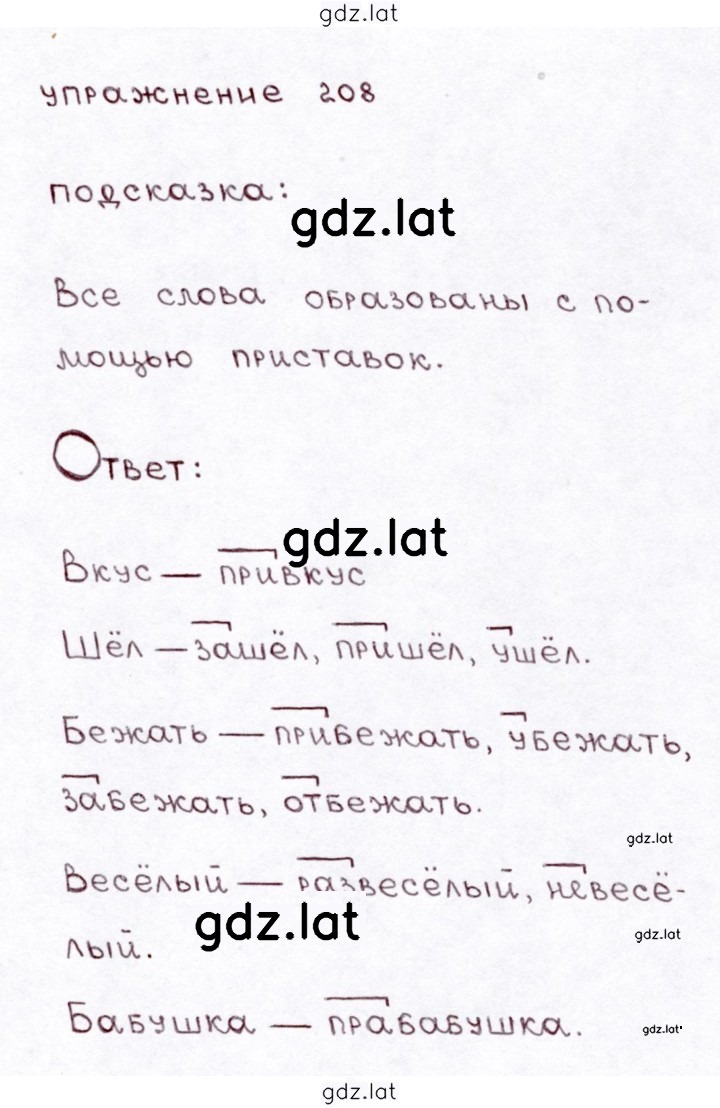 gdz.lat
упражнение 208
подсказка:
gdz.lat
Все слова образованы с по-
мощью приставок.
Ответ:
gdz.lat
Вкус — привкус
Шёл — зашёл, пришёл, ушёл.
Бежать — прибежать, убежать,
забежать, отбежать.
gdz.lat
Весёлый — развесёлый, невесё-
gdz.lat
gdz.lat
лый.
Бабушка — прабабушка.
gdz.lat
gdz.lat